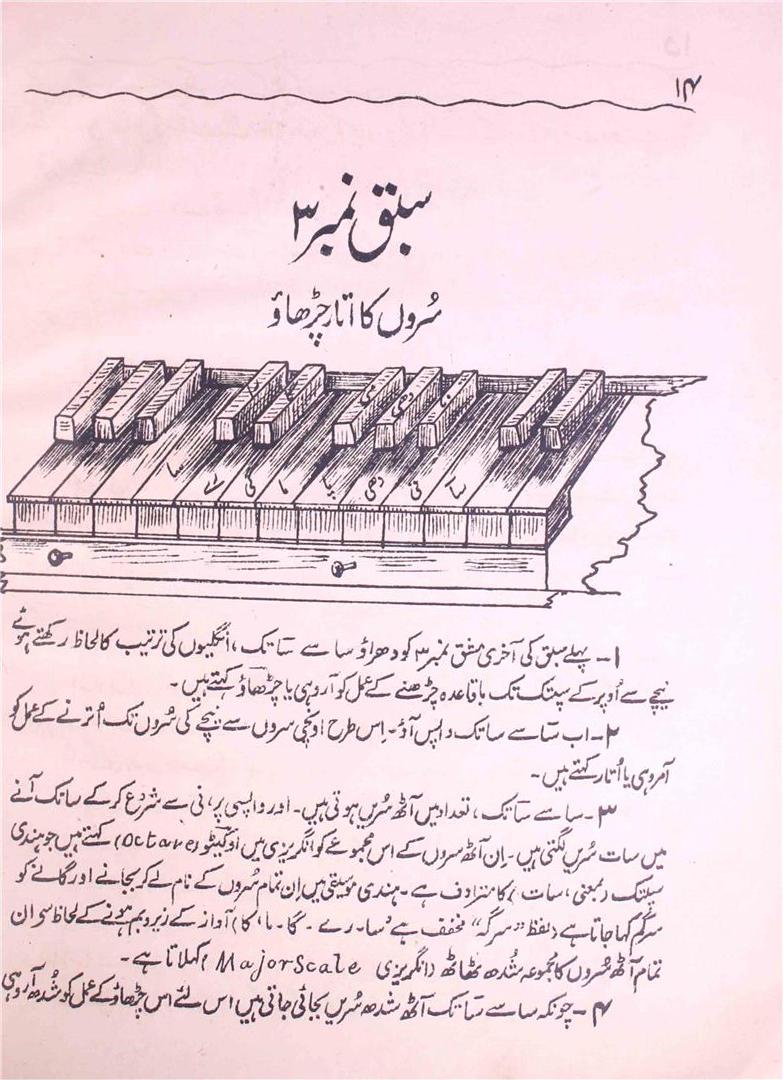 ۱۴
سبق نمبر ۳
سُروں کا اتار چڑھاؤ
سا رے گا ما پا دھی نی ساَ
۱۔ پہلے سبق کی آخری مشق نمبر ۳ کو دھراؤ سا سے ساَ تک، انگلیوں کی ترتیب کا لحاظ رکھتے ہوئے
نیچے سے اُوپر کے سپتک تک باقاعدہ چڑھنے کے عمل کو آروہی یا چڑھاؤ کہتے ہیں۔
۲۔ اب ساَ سے سا تک واپس آؤ۔ اِس طرح اونچی سروں سے نیچے کی سُروں تک اُترنے کے عمل کو
امروہی یا اُتار کہتے ہیں۔
۳۔ سا سے ساَ تک، تعداد میں آٹھ سُریں ہوتی ہیں۔ اور واپسی پر، نی سے شروع کر کے سا تک آنے
میں سات سُریں لگتی ہیں۔ اِن آٹھ سروں کے اس مجموعے کو انگریزی میں اوکٹیو (Octave) کہتے ہیں جو ہندی
سپتک (بمعنی، سات) کا مترادف ہے۔ ہندی موسیقی میں اِن تمام سُروں کے نام لے کر بجانے اور گانے کو
سرگم کہا جاتا ہے (لفظ "سرگہ" مخفف ہے 'سا۔ رے۔ گا۔ ما' کا) آواز کے زیر و بم ہونے کے لحاظ سے ان
تمام آٹھ سُروں کا مجموعہ شُدھ ٹھاٹھ (انگریزی Major Scale) کہلاتا ہے۔
۴۔ چونکہ سا سے ساَ تک آٹھ شدھ سُریں بجائی جاتی ہیں اس لئے اس چڑھاؤ کے عمل کو شُدھ آروہی